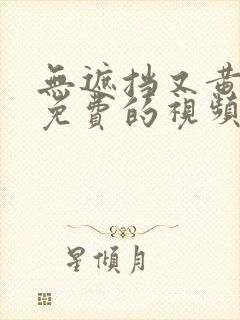 無遮挡又黄
免費的視頻
星傾月